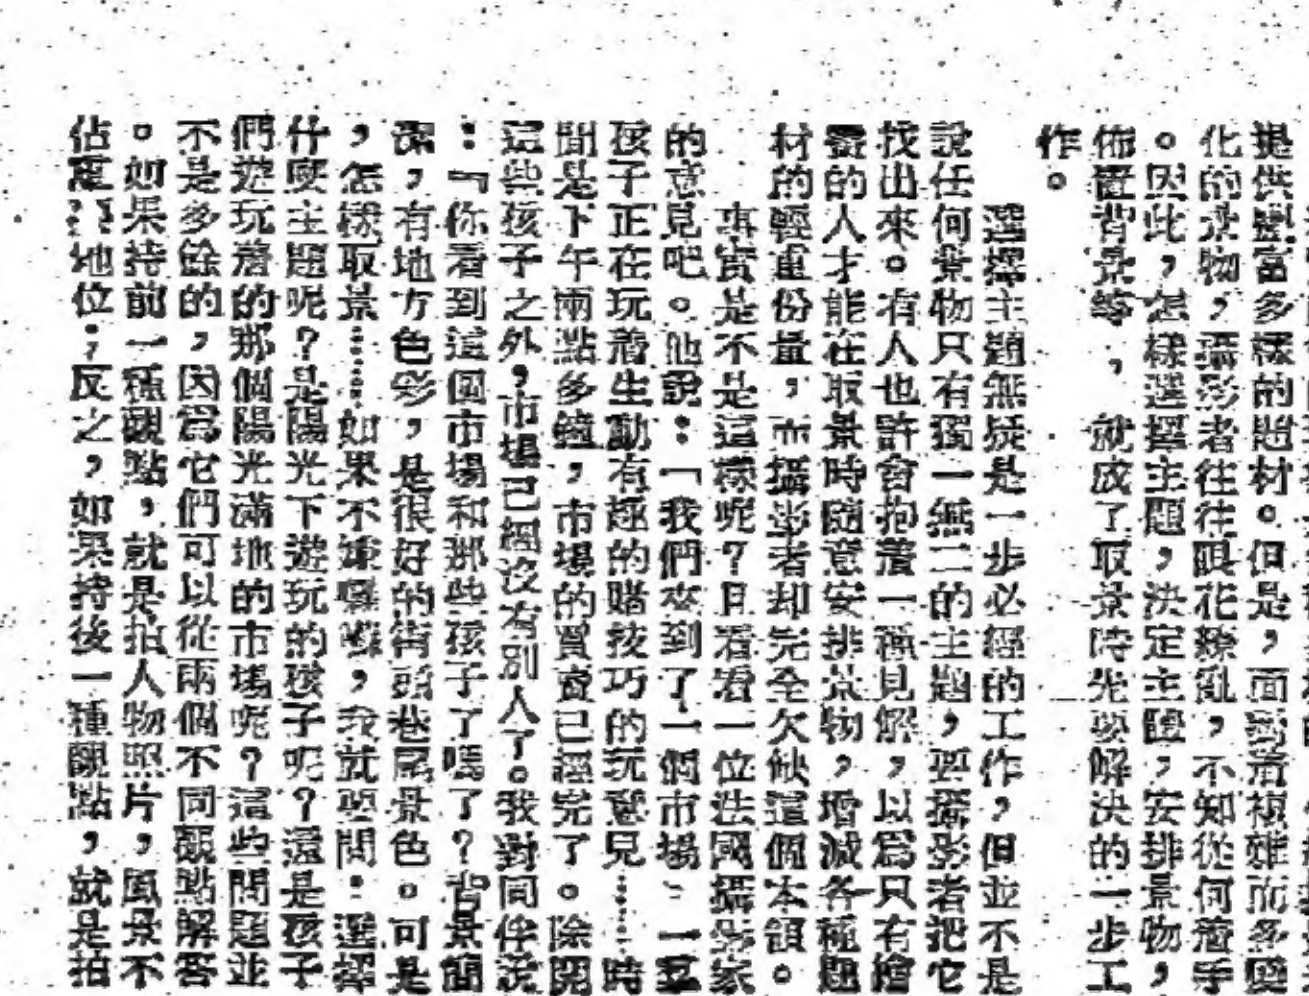 提供豐富多樣的題材。但是，面對着複雜而多變
化的景物，攝影者往往眼花繚亂，不知從何着手
。因此，怎樣選擇主題，決定主體，安排景物，
佈置背景等，就成了取景時先要解決的一步工
作。
選擇主題無疑是一步必經的工作，但並不是
說任何景物只有獨一無二的主題，要攝影者把它
找出來。有人也許會抱着一種見解，以爲只有繪
畫的人才能在取景時隨意安排景物，增減各種題
材的輕重份量，而攝影者却完全欠缺這個本領。
事實是不是這樣呢？且看看一位法國攝影家
的意見吧。他說：「我們來到了一個市場：一羣
孩子正在玩着生動有趣的賭技巧的玩意兒……時
間是下午兩點多鐘，市場的買賣已經完了。除開
這些孩子之外，市場已經沒有別人了。我對同伴說
：『你看到這個市場和那些孩子了嗎了？背景簡
潔，有地方色彩，是很好的街頭巷尾景色。可是
，怎樣取景……如果不嫌囉嗦，我就要問：選擇
什麼主題呢？是陽光下遊玩的孩子呢？還是孩子
們遊玩着的那個陽光滿地的市場呢？這些問題並
不是多餘的，因爲它們可以從兩個不同觀點解答
。如果持前一種觀點，就是拍人物照片，風景不
佔重要地位；反之，如果持後一種觀點，就是拍